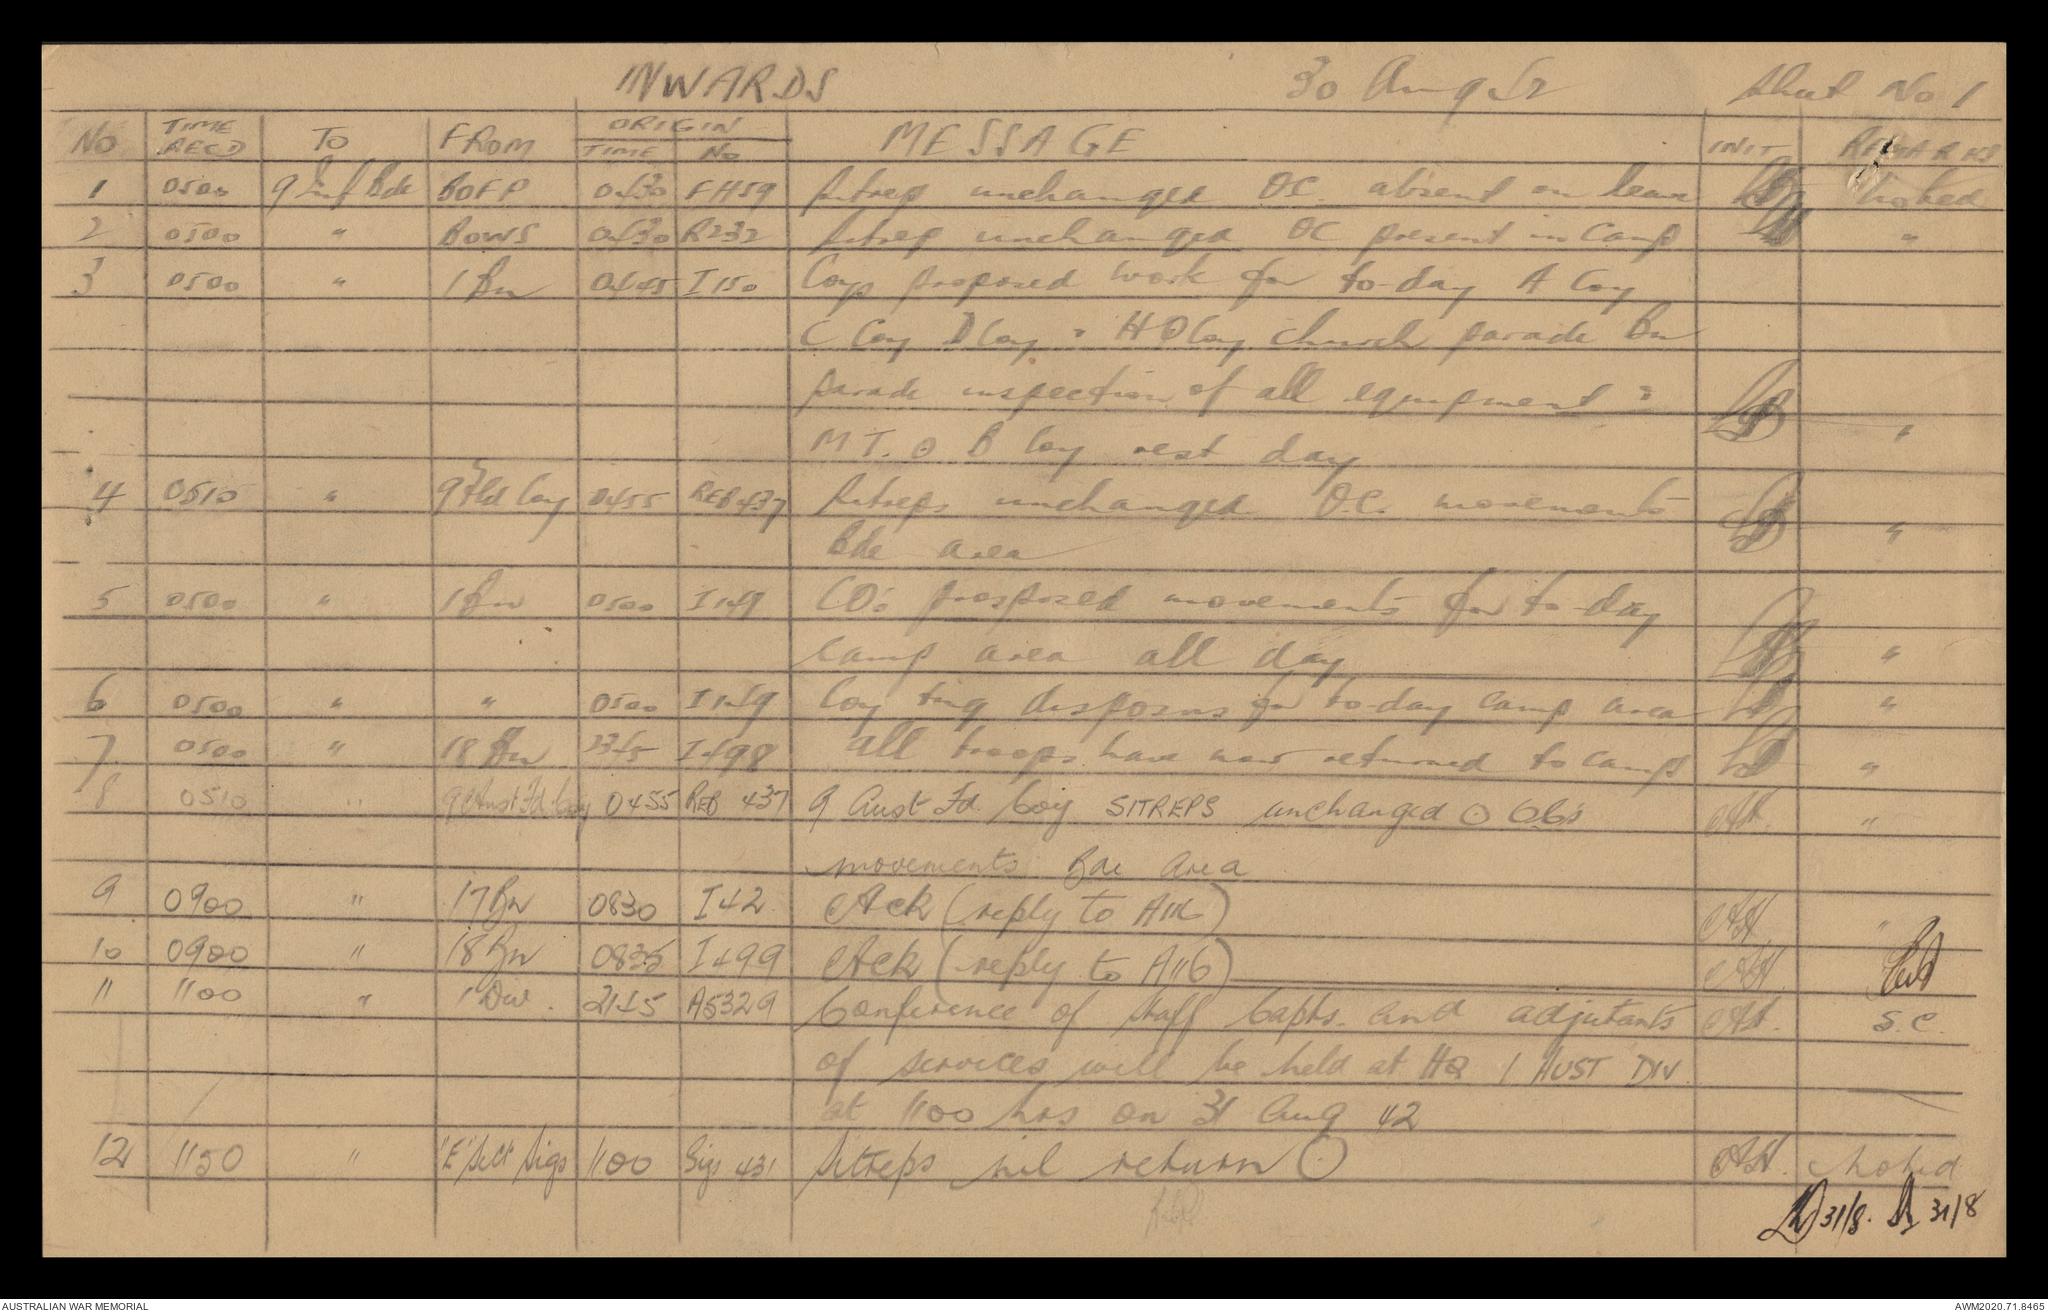 INWARDS 30 Aug 42 Sheet No 1
No TIME RECD TO FROM ORIGIN TIME No MESSAGE INIT REMARKS
1 0500 9 Inf Bde BOFP 0430 FH59 Sitrep unchanged OC. absent on leave Noted
2 0500 " BOWS 0430 R232 Sitrep unchanged OC present in Camp "
3 0500 " 1 Bn 0445 I150 Coys proposed work for to-day A Coy
C Coy D Coy & HQ Coy church parade Bn
parade inspection of all equipment &
M T. O B Coy rest day "
4 0510 " 9 Fld Coy 0455 REB 437 Sitreps unchanged O.C. movements
Bde area "
5 0500 " 1 Bn 0500 I149 CO's proposed movements for to-day
Camp area all day "
6 0500 " " 0500 Coy tng disposns for to-day camp area "
7 0500 " 18 Bn 2345 I498 All troops have now returned to camp "
8 0510 " 9 Aust Fd. Coy 0455 REB 437 9 Aust Fd. Coy SITREPS unchanged O OC's AH. "
movements Bde area
9 0900 " 17 Bn 0830 I42 Ack (reply to A116) AH "
10 0900 " 18 Bn 0835 I499 Ack (reply to A116) AH
11 1100 " 1 Div. 2145 A5329 Conference of Staff Capts. and adjutants AH. S.C.
of services will be held at HQ 1 AUST DIV
at 1100 hrs on 31 Aug 42
12 1150 " "E" Sect Sigs 1100 Sigs 431 Sitreps nil return O AH. Noted
31/8. 31/8
AUSTRALIAN WAR MEMORIAL AWM2020.71.8465